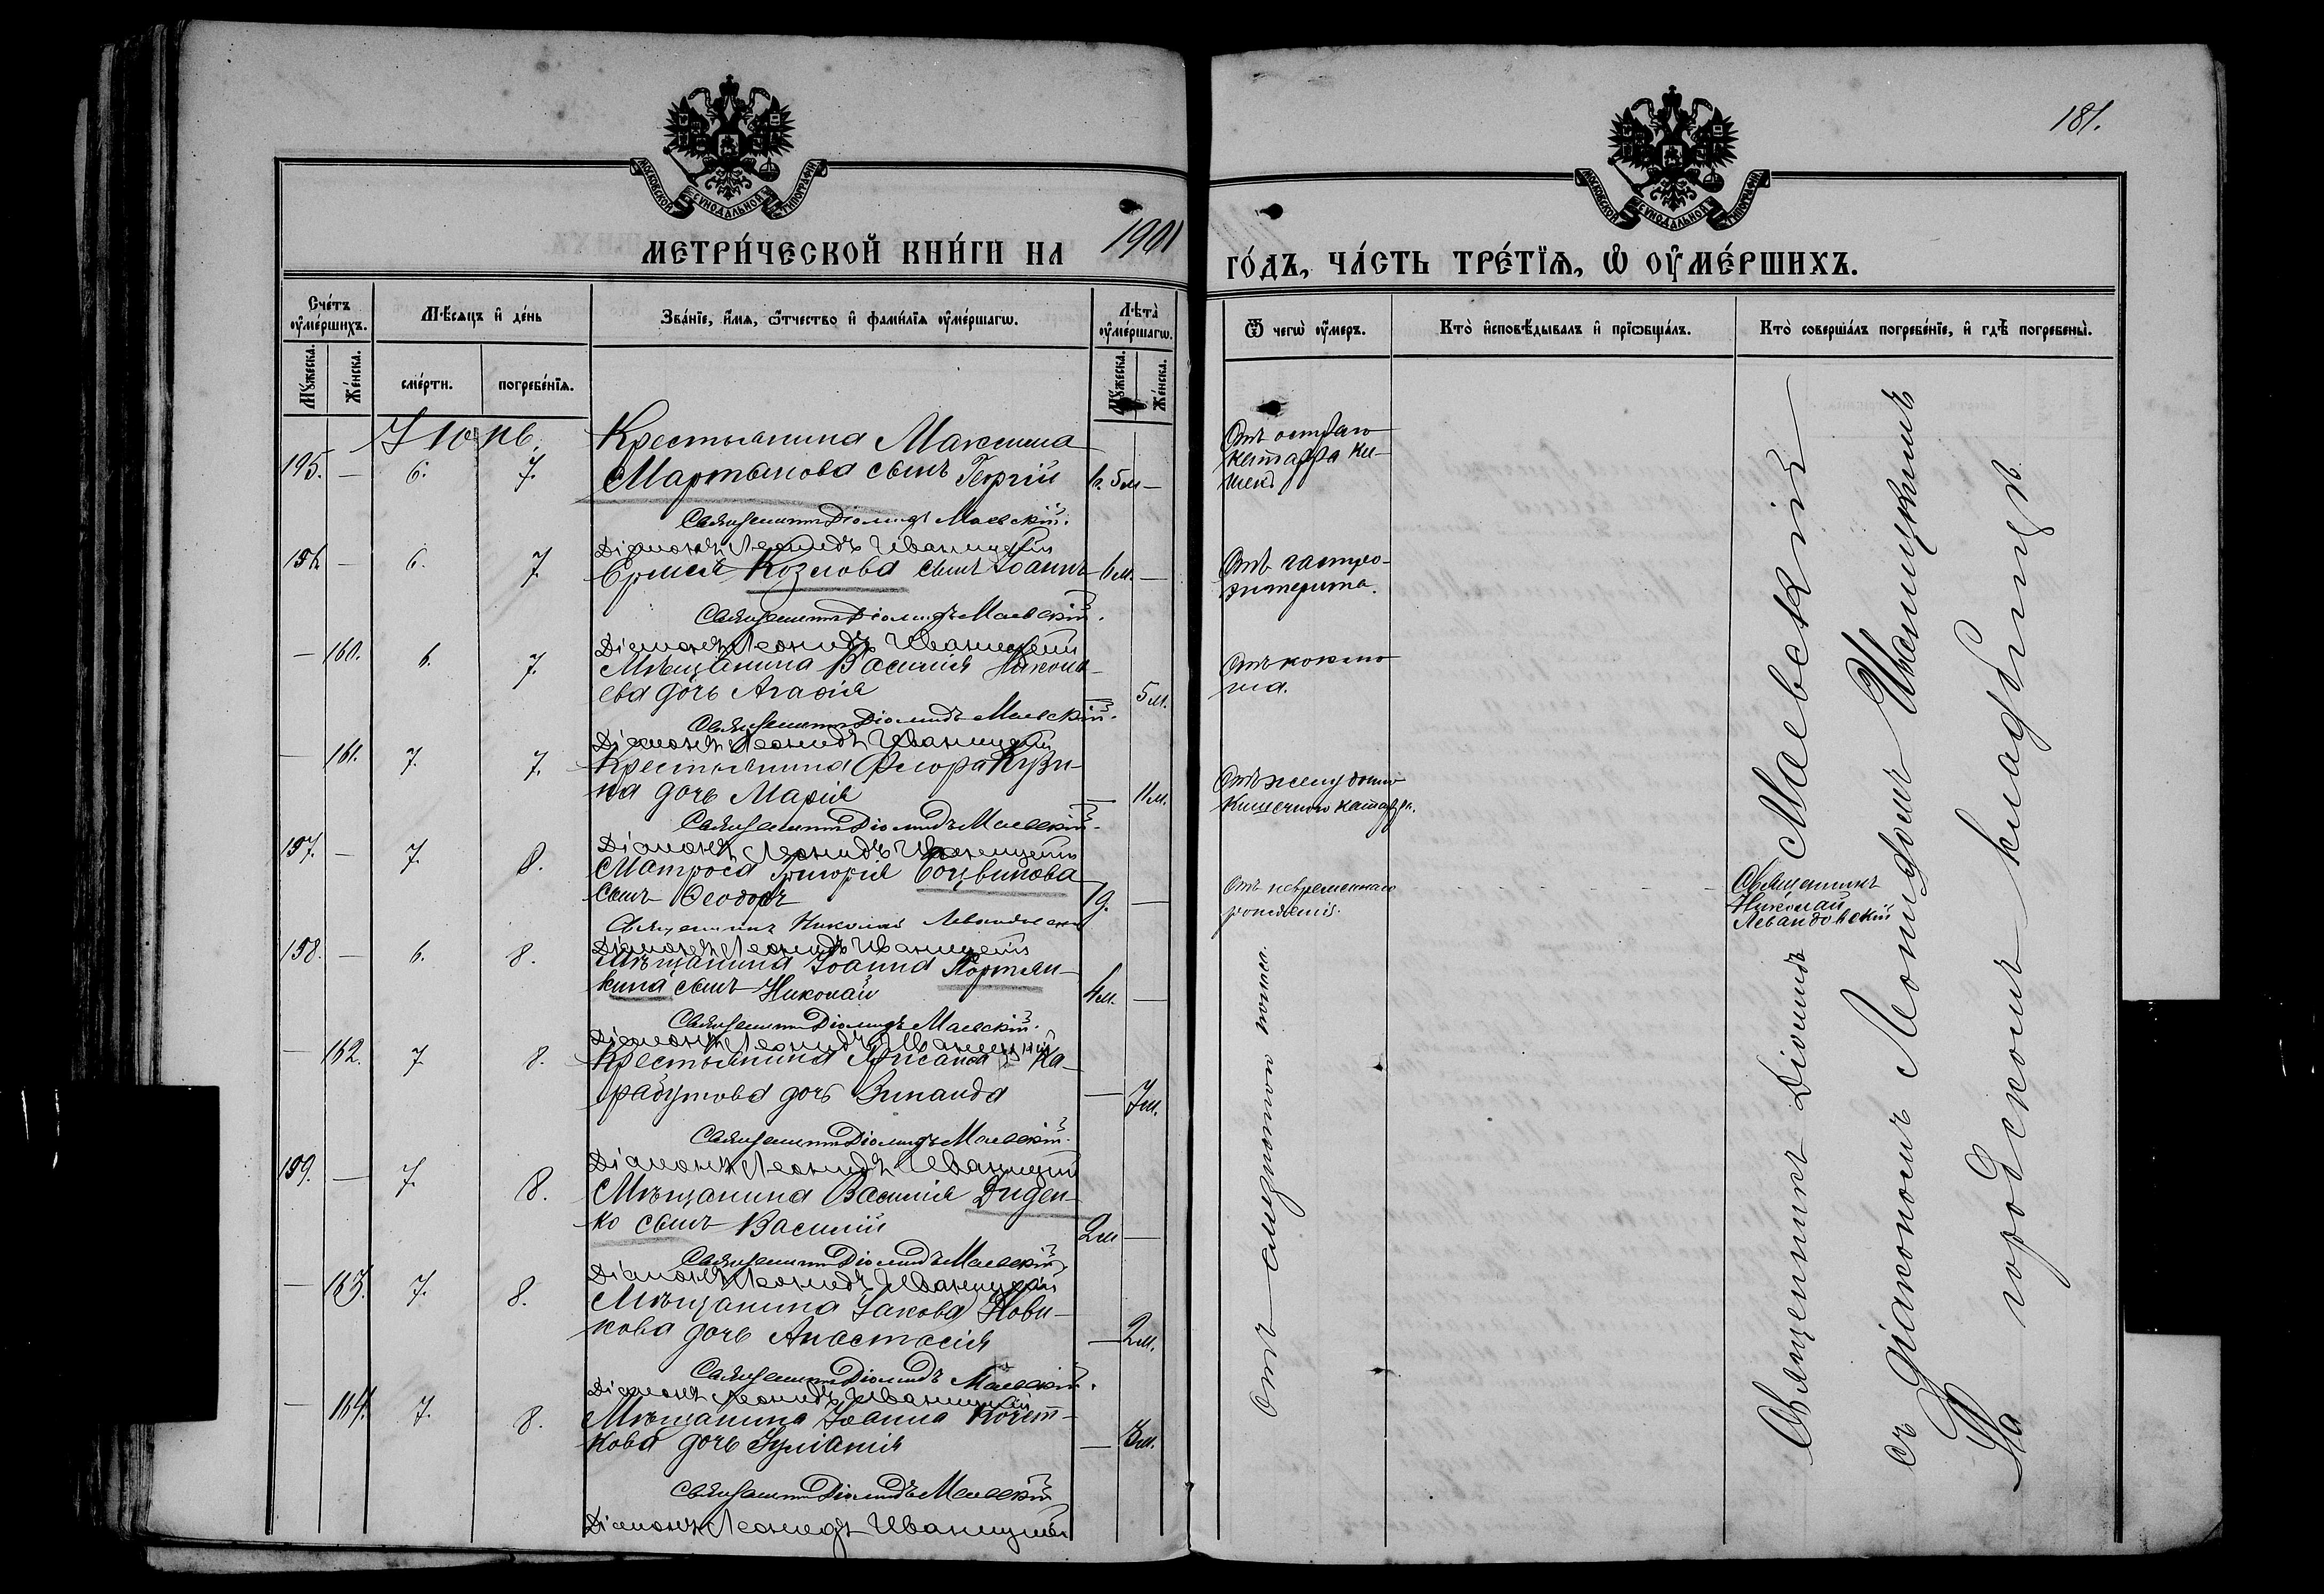 181.
МОСКОВСКОЙ СѴНОДАЛЬНОЙ ТИПОГРАФІИ
МОСКОВСКОЙ СѴНОДАЛЬНОЙ ТИПОГРАФІИ
МЕТРИ́ЧЕСКОЙ КНИ́ГИ НА 1901
ГО́ДЪ, ЧА́СТЬ ТРЕ́ТЇѦ, Ѡ҆ ОУ҆МЕ́РШИХЪ.
Сче́тъ оу҆ме́ршихъ.
Мꙋ́жеска.
Же́нска.
Мѣ́сяцъ и҆ де́нь
сме́рти.
погребе́нїѧ.
Зва́нїе, и҆́мѧ, ѻ҆́тчество и҆ фами́лїѧ оу҆ме́ршагѡ.
Лѣ̀та оу҆ме́ршагѡ.
Мꙋ́жеска.
Же́нска.
Ѿ чегѡ̀ оу҆́меръ.
Кто̀ и҆сповѣ́дывалъ и҆ прїѡбща́лъ.
Кто̀ соверша́лъ погребе́нїе, и҆ гдѣ̀ погребены̀.
Іюнь.
195. — 6. 7.
Крестьянина Максима
Мартынова сынъ Георгій
1г. 5м —
Отъ остраго
катарра ки-
шекъ
Священникъ Діомидъ Маевскій.
Діаконъ Леонидъ Иваницкій
156. — 6. 7.
Козлова сынъ Іоаннъ 6м. —
Отъ гастро-
энтерита.
Священникъ Діомидъ Маевскій.
Діаконъ Леонидъ Иваницкій
— 160. 6. 7.
Мѣщанина Василія
ева дочь Агафія
5м.
Отъ коклю
ша.
Священникъ Діомидъ Маевскій.
Діаконъ Леонидъ Иваницкій
— 161. 7. 7.
Крестьянина Флора Кузи-
на дочь Марія
— 11м.
Отъ желудочно
кишечнаго катарра.
Священникъ Діомидъ Маевскій.
Діаконъ Леонидъ Иваницкій
157. — 7. 8.
Матроса Григорія
сынъ Ѳеодоръ
1д. —
Отъ
рожденія.
Священникъ
Николай
Левандовскій
Священникъ Николай Левандовскій
Діаконъ Леонидъ Иваницкій
158. — 6. 8.
Мѣщанина Іоанна Портян-
кина сынъ Николай
4м. —
Священникъ Діомидъ Маевскій.
Діаконъ Леонидъ Иваницкій
— 162. 7 8.
Крестьянина Ка-
рабутова дочь Зинаида
— 7м.
Священникъ Діомидъ Маевскій.
Діаконъ Леонидъ Иваницкій
159. — 7. 8.
Мѣщанина Василія Диден-
ко сынъ Василій
2м —
Священникъ Діомидъ Маевскій
Діаконъ Леонидъ Иваницкій
— 163. 7. 8.
Мѣщанина Іакова Нови-
кова дочь Анастасія
— 2м.
Священникъ Діомидъ Маевскій.
Діаконъ Леонидъ Иваницкій
— 164. 7. 8.
Мѣщанина Іоанна Кочет-
кова дочь Іуліанія
— 3м.
Священникъ Діомидъ Маевскій
Діаконъ Леонидъ Иваницкій
Отъ поноса.
Священникъ Діомидъ Маевскій
съ діакономъ Леонидомъ Иваницкимъ
На городскомъ кладбищѣ